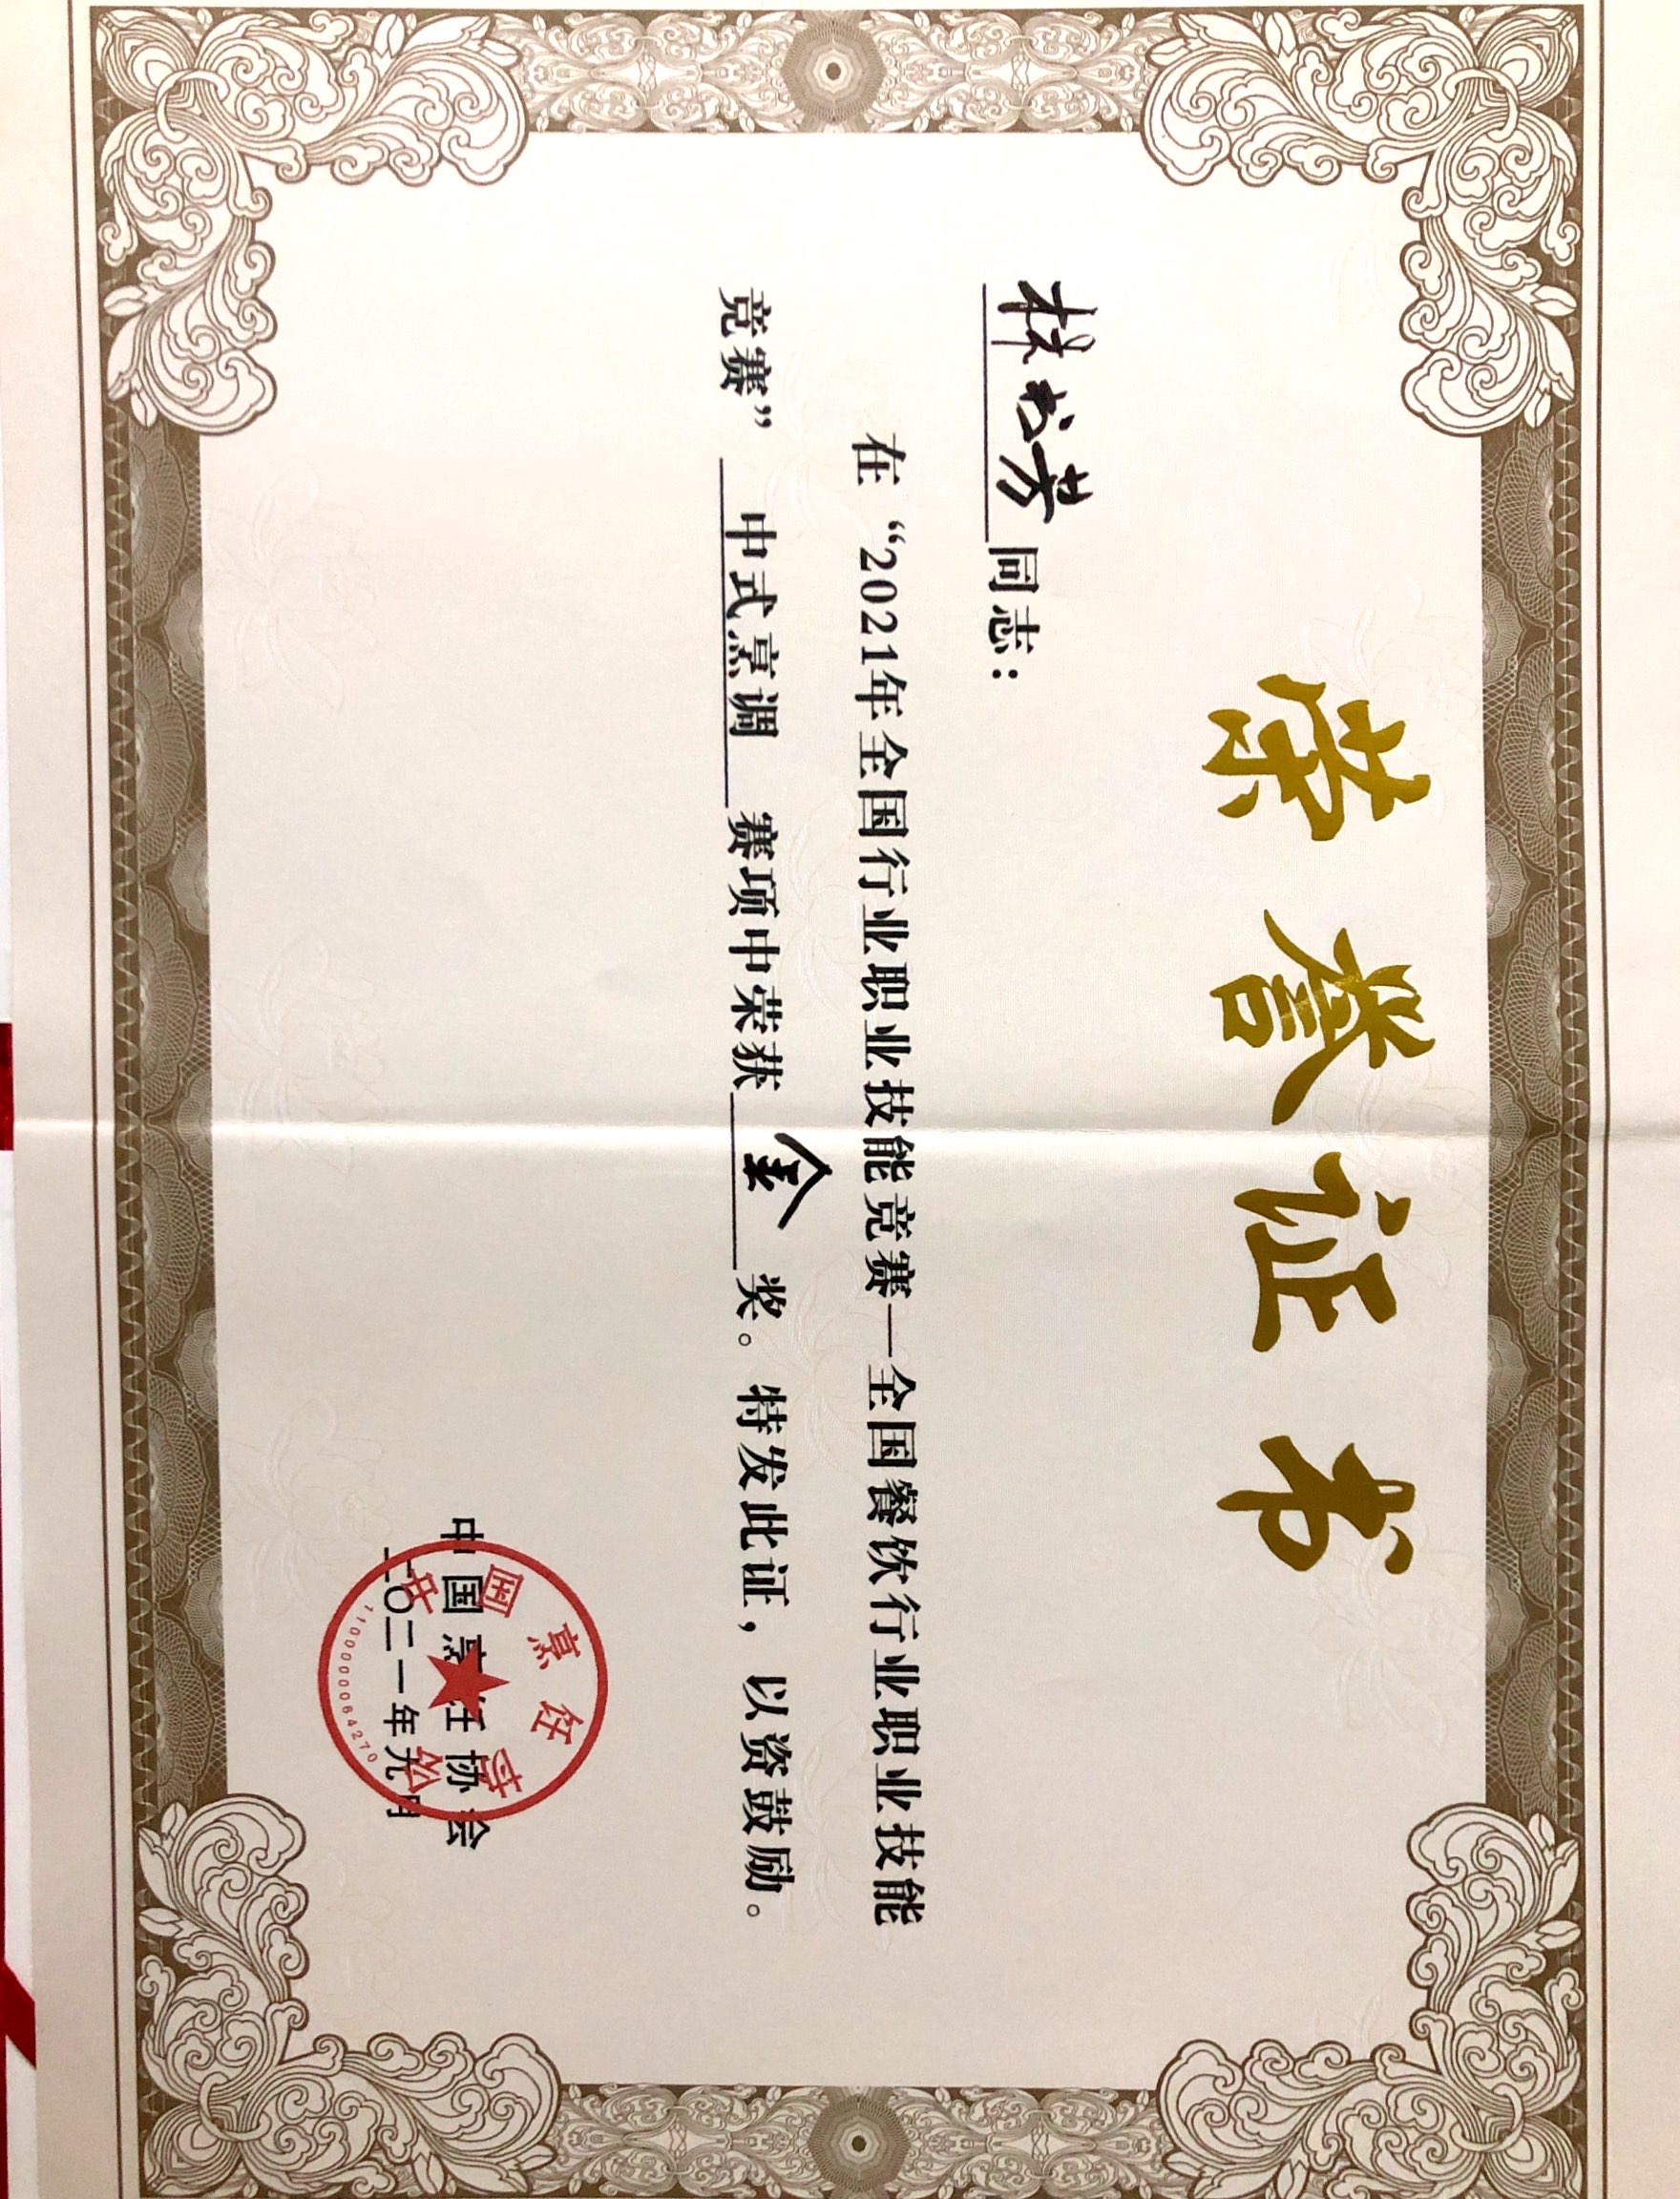 荣誉证书
林书芳同志：
在“2021年全国行业职业技能竞赛—全国餐饮行业职业技能
竞赛” 中式烹调 赛项中荣获 金 奖。特发此证，以资鼓励。
中国烹饪协会
二〇二一年九月
中国烹饪协会
1100000064270